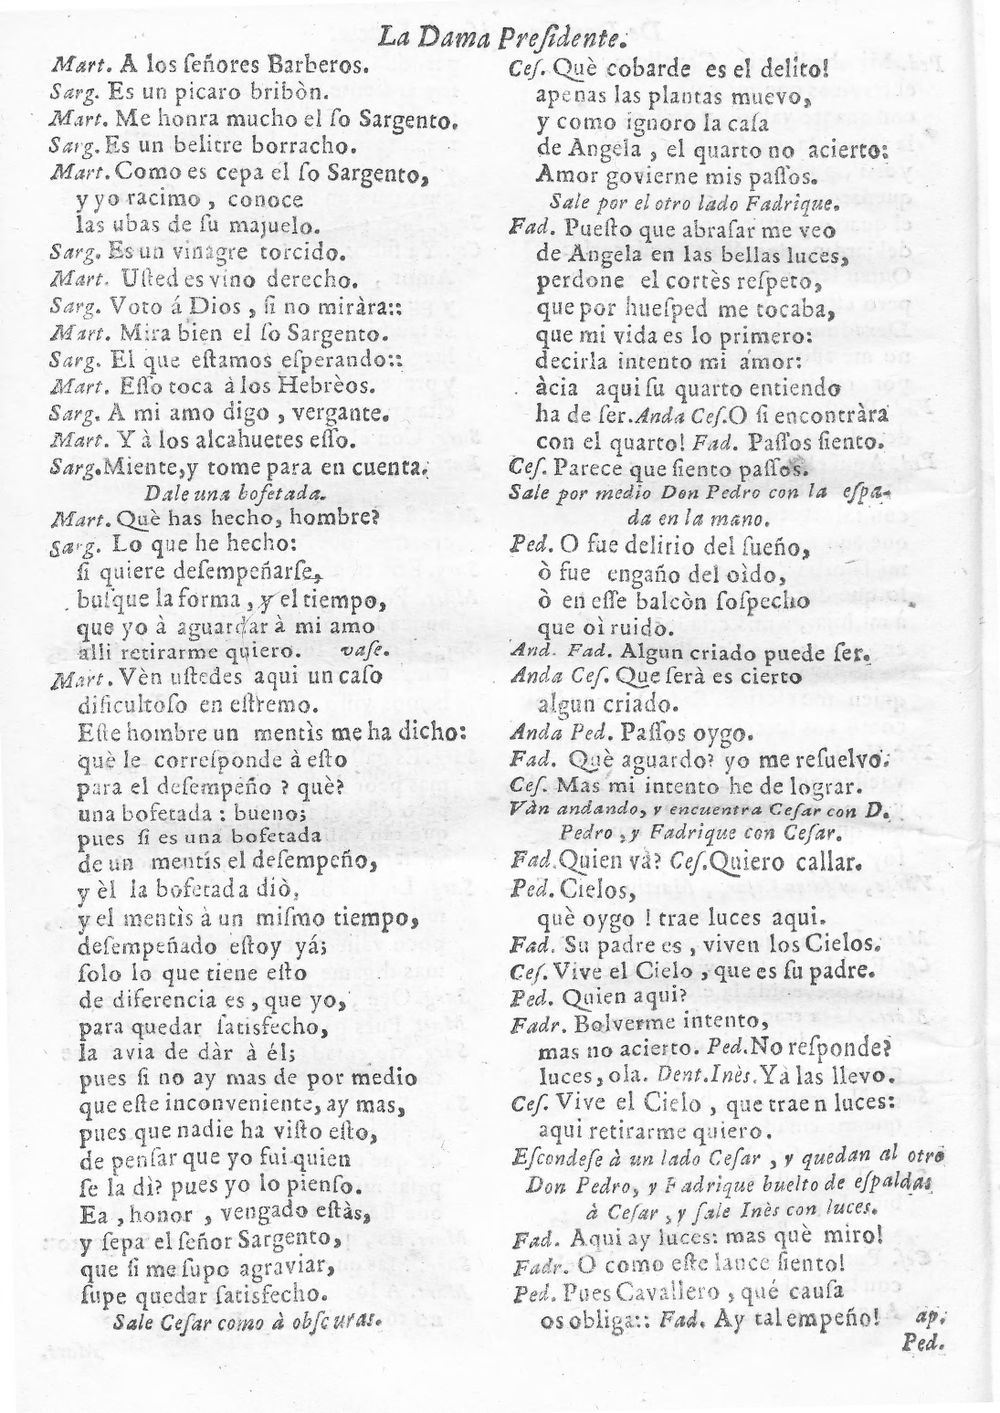 La Dama Preſidente.
Mart. A los ſeñores Barberos.
Sarg. Es un picaro bribòn.
Mart. Me honra mucho el ſo Sargento.
Sarg. Es un belitre borracho.
Mart. Como es cepa el ſo Sargento,
y yo racimo , conoce
las ubas de ſu majuelo.
Sarg. Es un vinagre torcido.
Mart. Uſted es vino derecho.
Sarg. Voto á Dios , ſi no miràra::
Mart. Mira bien el ſo Sargento.
Sarg. El que eſtamos eſperando::
Mart. Eſſo toca à los Hebrèos.
Sarg. A mi amo digo , vergante.
Mart. Y à los alcahuetes eſſo.
Sarg. Miente, y tome para en cuenta.
Dale una bofetada.
Mart. Què has hecho, hombre?
Sarg. Lo que he hecho:
ſi quiere deſempeñarſe,
buſque la forma , y el tiempo,
que yo à aguardar à mi amo
alli retirarme quiero. vaſe.
Mart. Vèn uſtedes aqui un caſo
dificultoſo en eſtremo.
Eſte hombre un mentìs me ha dicho:
què le correſponde à eſto
para el deſempeño ? què?
una bofetada : bueno;
pues ſi es una bofetada
de un mentís el deſempeño,
y èl la bofetada diò,
y el mentìs à un miſmo tiempo,
deſempeñado eſtoy yá;
ſolo lo que tiene eſto
de diferencia es , que yo,
para quedar ſatisfecho,
la avia de dàr à él;
pues ſi no ay mas de por medio
que eſte inconveniente, ay mas,
pues que nadie ha viſto eſto,
de penſar que yo fui quien
ſe la dì? pues yo lo pienſo.
Ea , honor , vengado eſtàs,
y ſepa el ſeñor Sargento,
que ſi me ſupo agraviar,
ſupe quedar ſatisfecho.
Sale Ceſar como à obſcuras.
Ceſ. Què cobarde es el delito!
apenas las plantas muevo,
y como ignoro la caſa
de Angela , el quarto no acierto:
Amor govierne mis paſſos.
Sale por el otro lado Fadrique.
Fad. Pueſto que abraſar me veo
de Angela en las bellas luces,
perdone el cortès reſpeto,
que por hueſped me tocaba,
que mi vida es lo primero:
decirla intento mi ámor:
àcia aqui ſu quarto entiendo
ha de ſer. Anda Ceſ. O ſi encontràra
con el quarto! Fad. Paſſos ſiento.
Ceſ. Parece que ſiento paſſos.
Sale por medio Don Pedro con la eſpa-
da en la mano.
Ped. O fue delirio del ſueño,
ò fue engaño del oìdo,
ò en eſſe balcòn ſoſpecho
que oì ruido.
And. Fad. Algun criado puede ſer.
Anda Ceſ. Que ſerà es cierto
algun criado.
Anda Ped. Paſſos oygo.
Fad. Què aguardo? yo me reſuelvo.
Ceſ. Mas mi intento he de lograr.
Vàn andando, y encuentra Ceſar con D.
Pedro , y Fadrique con Ceſar.
Fad. Quien và? Ceſ. Quiero callar.
Ped. Cielos,
què oygo ! trae luces aqui.
Fad. Su padre es , viven los Cielos.
Ceſ. Vive el Cielo , que es ſu padre.
Ped. Quien aqui?
Fadr. Bolverme intento,
mas no acierto. Ped. No reſponde?
luces, ola. Dent. Inès. Yà las llevo.
Ceſ. Vive el Cielo , que traen luces:
aqui retirarme quiero.
Eſcondeſe à un lado Ceſar , y quedan al otro
Don Pedro, y Fadrique buelto de eſpaldas
à Ceſar , y ſale Inès con luces.
Fad. Aqui ay luces: mas què miro!
Fadr. O como eſte lance ſiento!
Ped. Pues Cavallero , qué cauſa
os obliga:: Fad. Ay tal empeño! ap.
Ped.